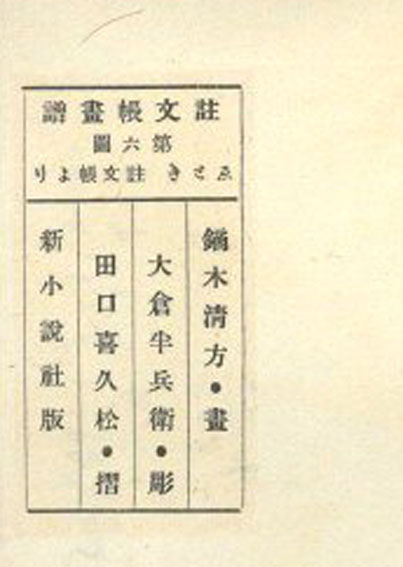 註文帳畫譜
第六圖
ゑとき 註文帳より
鏑木清方●畫
大倉半兵衛●彫
田口喜久松●摺
新小說社版